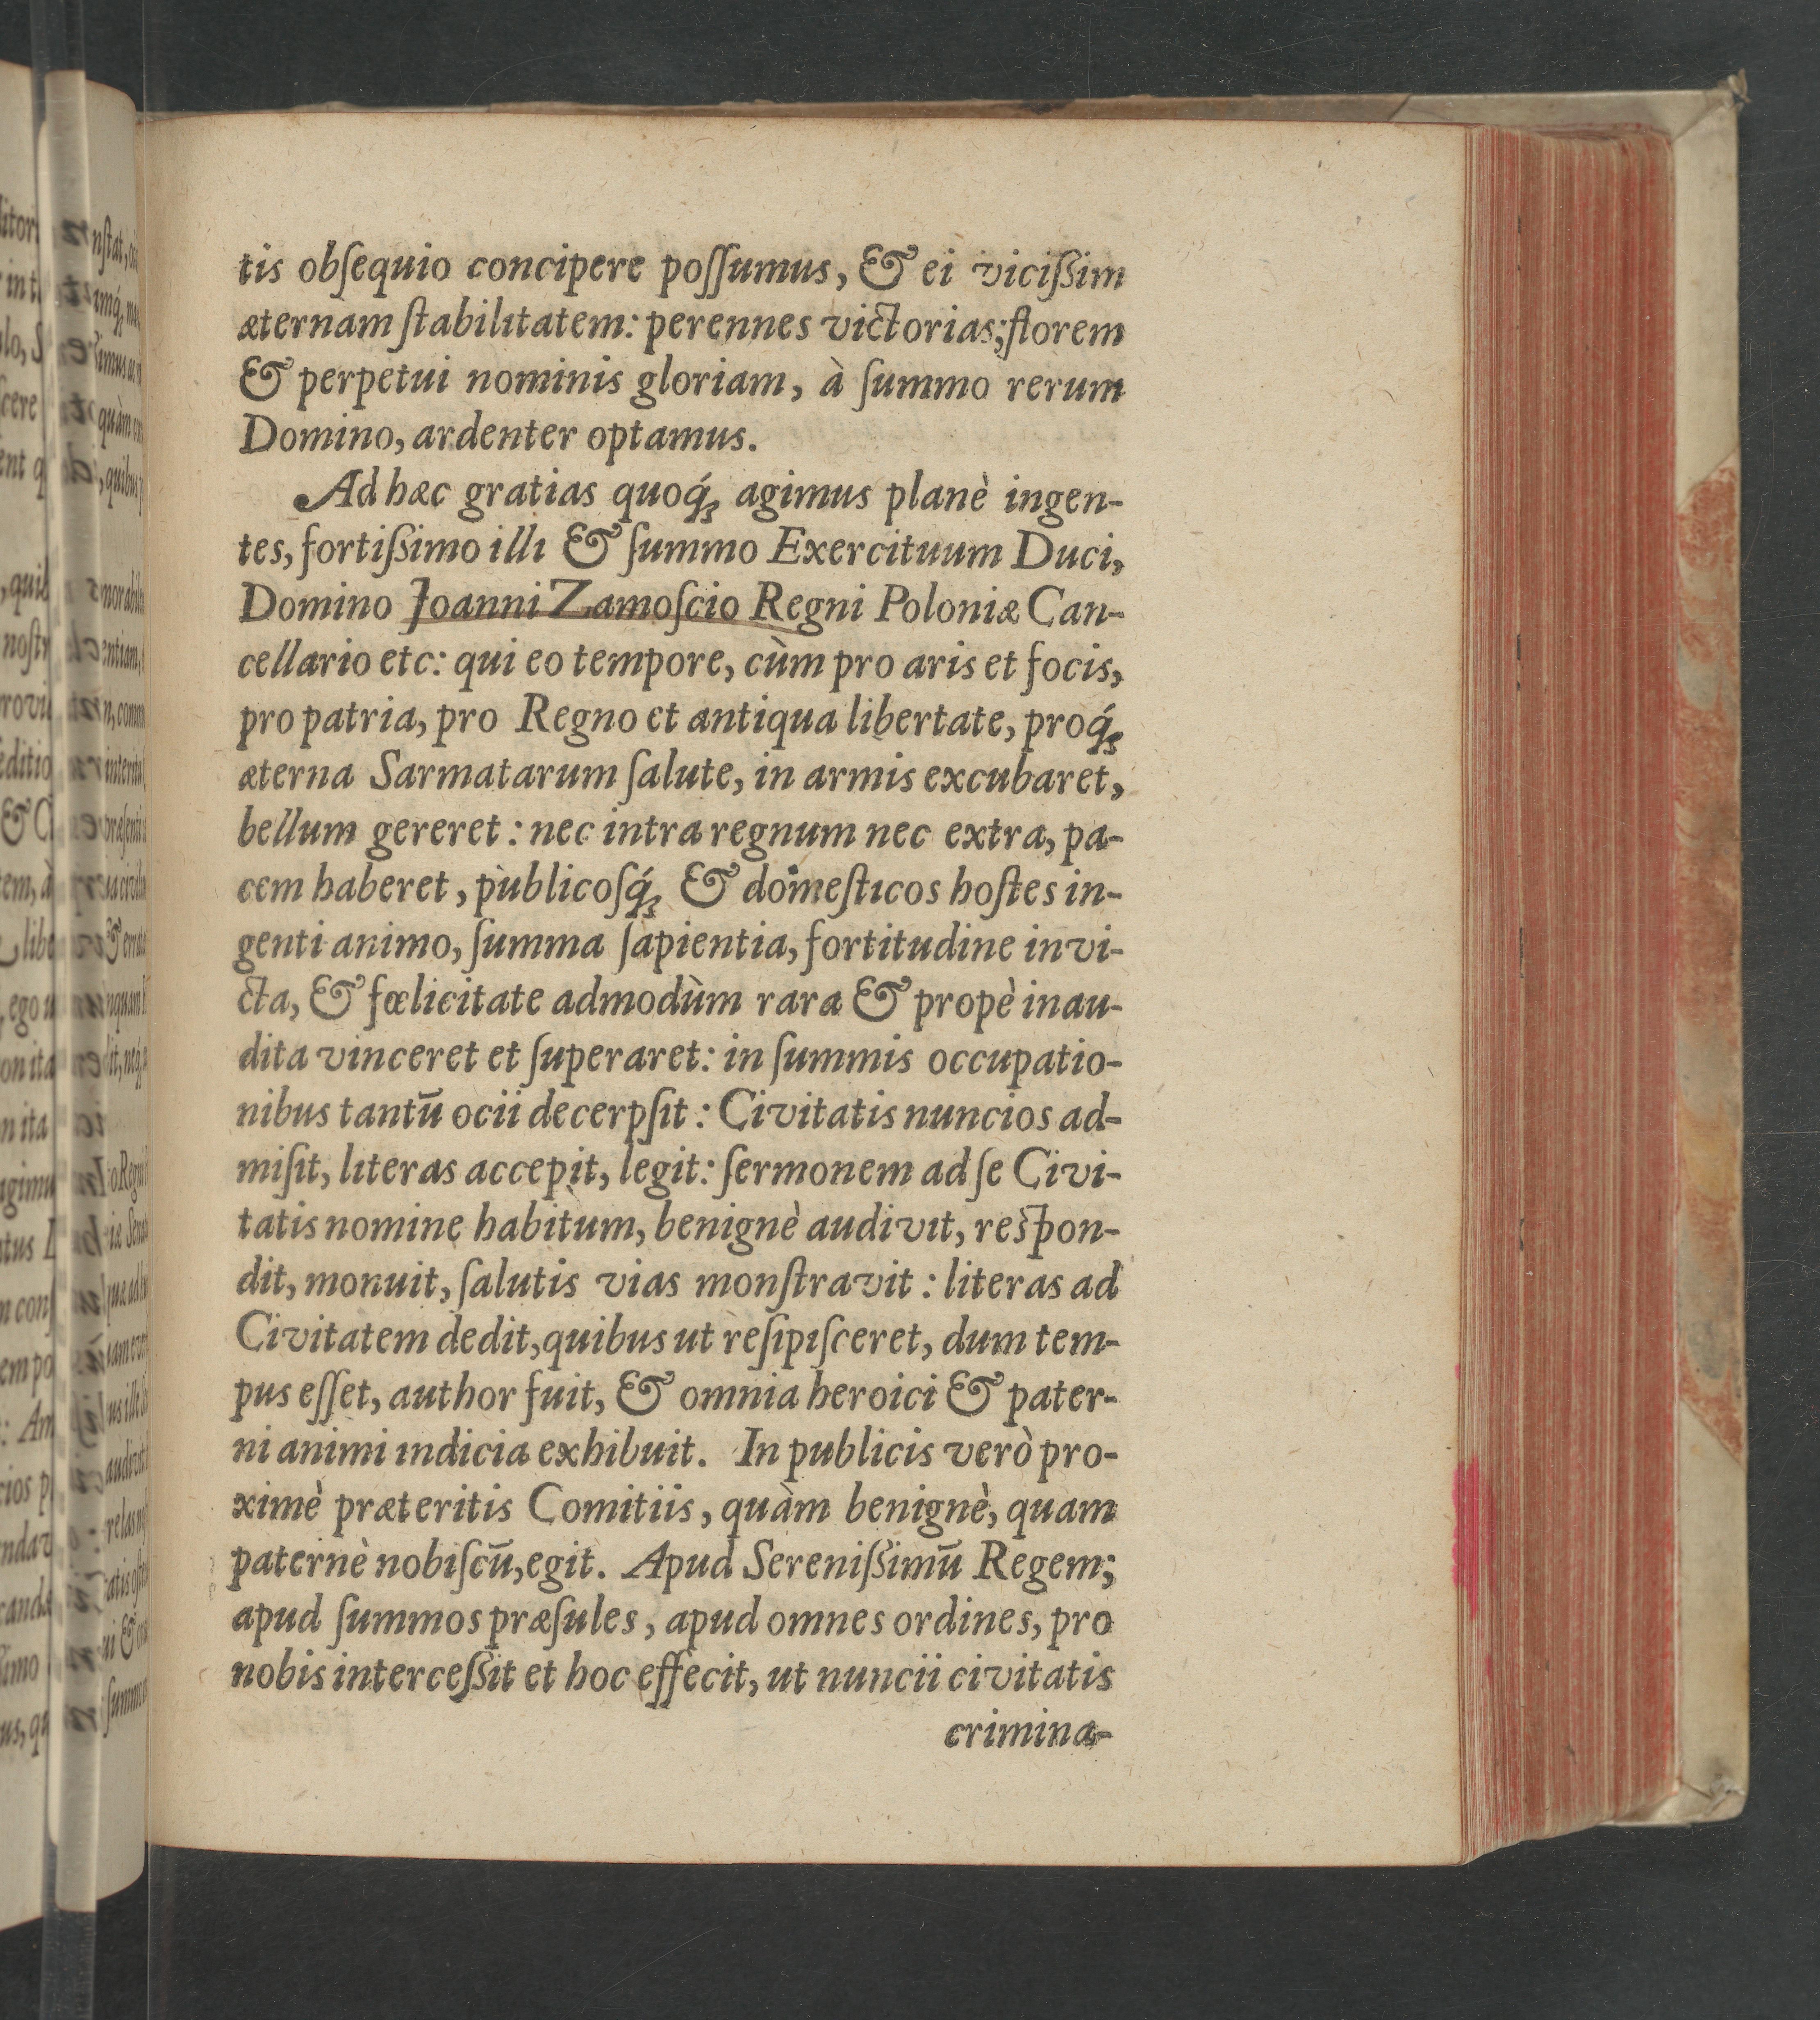 tis obſequio concipere poſſumus, & ei viciſſim
æternam ſtabilitatem: perennes victorias; florem
& perpetui nominis gloriam, à ſummo rerum
Domino, ardenter optamus.
Ad hæc gratias quoq́ꝫ agimus planè ingen-
tes, fortiſſimo illi & ſummo Exercituum Duci,
Domino Joanni Zamoſcio Regni Poloniæ Can-
cellario etc: qui eo tempore, cùm pro aris et focis,
pro patria, pro Regno et antiqua libertate, proq́ꝫ
æterna Sarmatarum ſalute, in armis excubaret,
bellum gereret: nec intra regnum nec extra, pa-
cem haberet, publicoſq́ꝫ & domeſticos hoſtes in-
genti animo, ſumma ſapientia, fortitudine invi-
cta, & fœlicitate admodùm rara & propè inau-
dita vinceret et ſuperaret: in ſummis occupatio-
nibus tantū ocii decerpſit: Civitatis nuncios ad-
miſit, literas accepit, legit: ſermonem ad ſe Civi-
tatis nomine habitum, benignè audivit, reſpon-
dit, monuit, ſalutis vias monſtravit: literas ad
Civitatem dedit, quibus ut reſipiſceret, dum tem-
pus eſſet, author fuit, & omnia heroici & pater-
ni animi indicia exhibuit. In publicis verò pro-
ximè præteritis Comitiis, quàm benignè, quam
paternè nobiſcū, egit. Apud Sereniſſimū Regem;
apud ſummos præſules, apud omnes ordines, pro
nobis interceſſit et hoc effecit, ut nuncii civitatis
crimina-